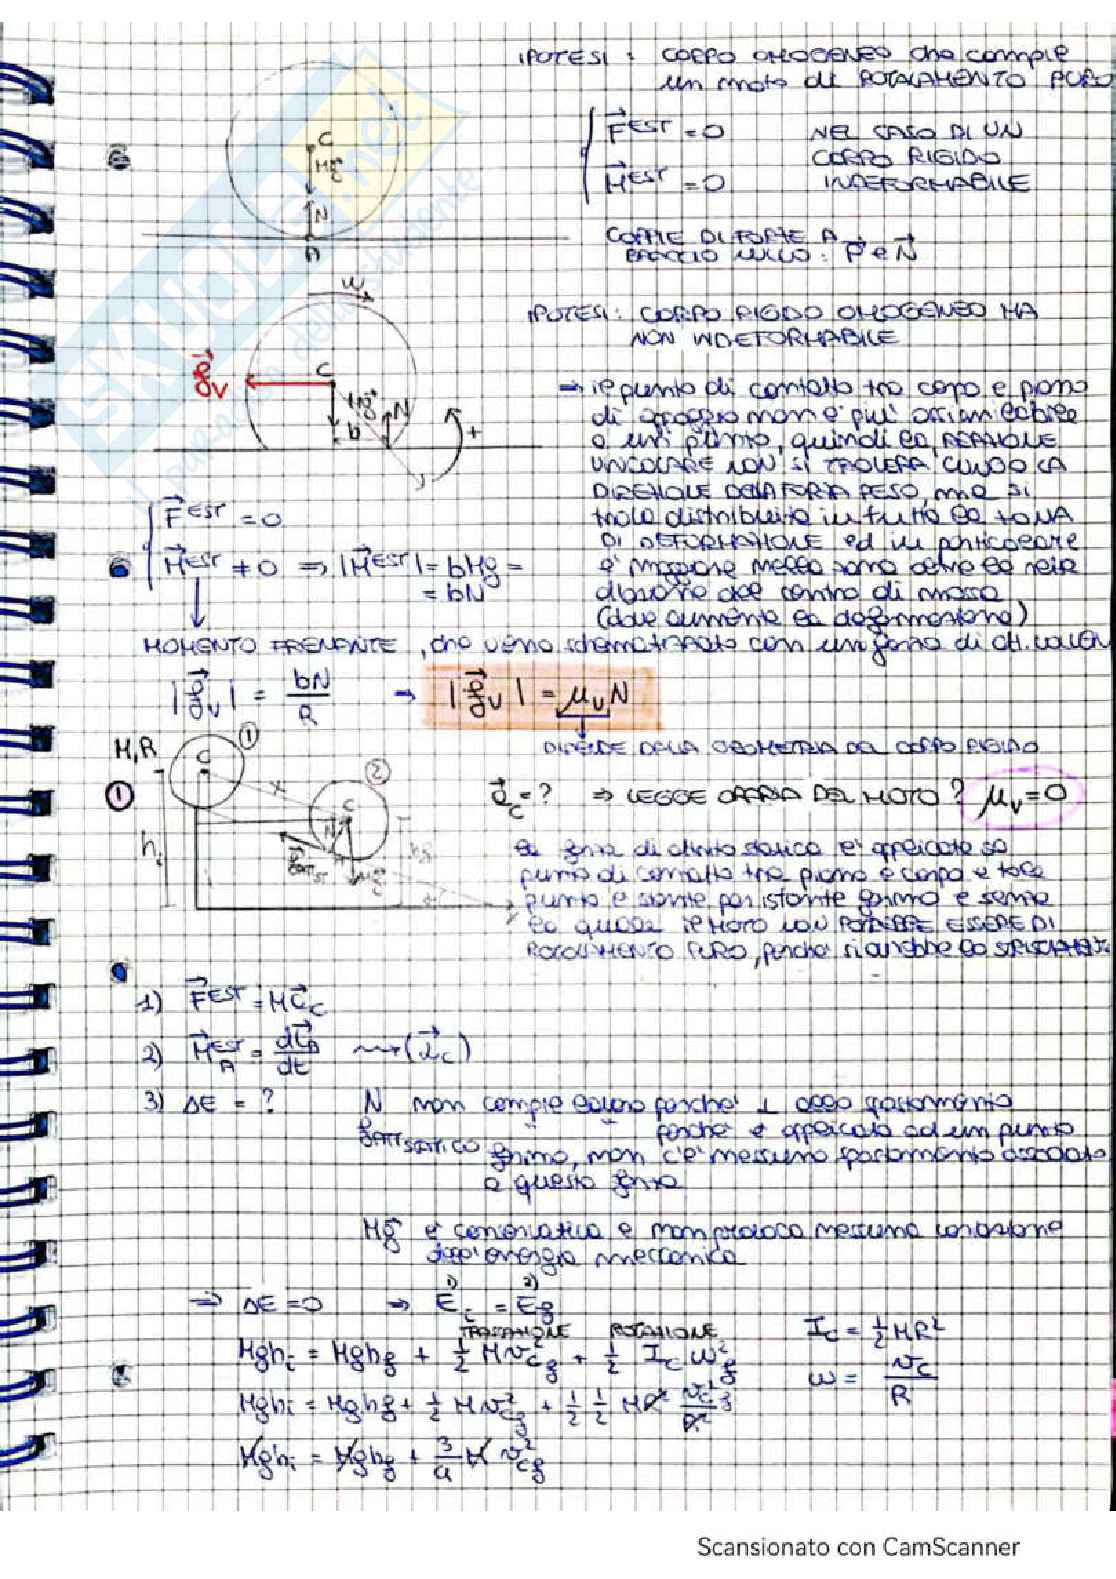 IPOTESI : CORPO OMOGENEO che compie
un moto di ROTOLAMENTO PURO
F^EST = 0 NEL CASO DI UN
CORPO RIGIDO
M^EST = 0 INDEFORMABILE
C
Mg
N
A
COPPIE DI FORZE A
BRACCIO NULLO : P e N
IPOTESI : CORPO RIGIDO OMOGENEO MA
NON INDEFORMABILE
ω
C
f_V
Mg
N
b
+
→ il punto di contatto tra corpo e piano
di appoggio non è più assimilabile
a un punto, quindi la REAZIONE
VINCOLARE NON SI TROVERÀ LUNGO LA
DIREZIONE DELLA FORZA PESO, ma si
trova distribuita in tutta la ZONA
DI DEFORMAZIONE ed in particolare
è maggiore nella zona oltre la
direzione del centro di massa
(dove aumenta la deformazione)
F^EST = 0
M^EST ≠ 0 ⇒ |M^EST| = bMg =
= bN
MOMENTO FRENANTE, che viene schematizzato con una forza di att. volven
|f_V| = bN/R → |f_V| = μ_V N
DIPENDE DALLA GEOMETRIA DEL CORPO RIGIDO
M,R
C
①
②
①
x
C
N
h_i
h_f
f_att st
Mg
a_C = ? ⇒ LEGGE ORARIA DEL MOTO? μ_V = 0
la forza di attrito statico è applicata sul
punto di contatto tra piano e corpo e tale
punto è istante per istante fermo e senza
la quale il MOTO NON POTREBBE ESSERE DI
ROTOLAMENTO PURO, perché si avrebbe lo STRISCIAMENTO
1) F^EST = Ma_C
2) M_A^EST = dL_A/dt ⇝ (α_C)
3) ΔE = ? N non compie lavoro perché ⊥ allo spostamento
f_ATT STATICO " " perché è applicata ad un punto
fermo, non c'è nessuno spostamento associato
a questa forza
Mg è conservativa e non provoca nessuna variazione
dell'energia meccanica
⇒ ΔE = 0 → E_i^1) = E_f^2)
TRASLAZIONE ROTAZIONE
Mgh_i = Mgh_f + 1/2 Mv²_Cf + 1/2 I_C ω²_f
I_C = 1/2 MR²
ω = v_C/R
Mgh_i = Mgh_f + 1/2 Mv²_Cf + 1/2 1/2 MR² v²_Cf/R²
Mgh_i = Mgh_f + 3/4 M v²_Cf
Scansionato con CamScanner